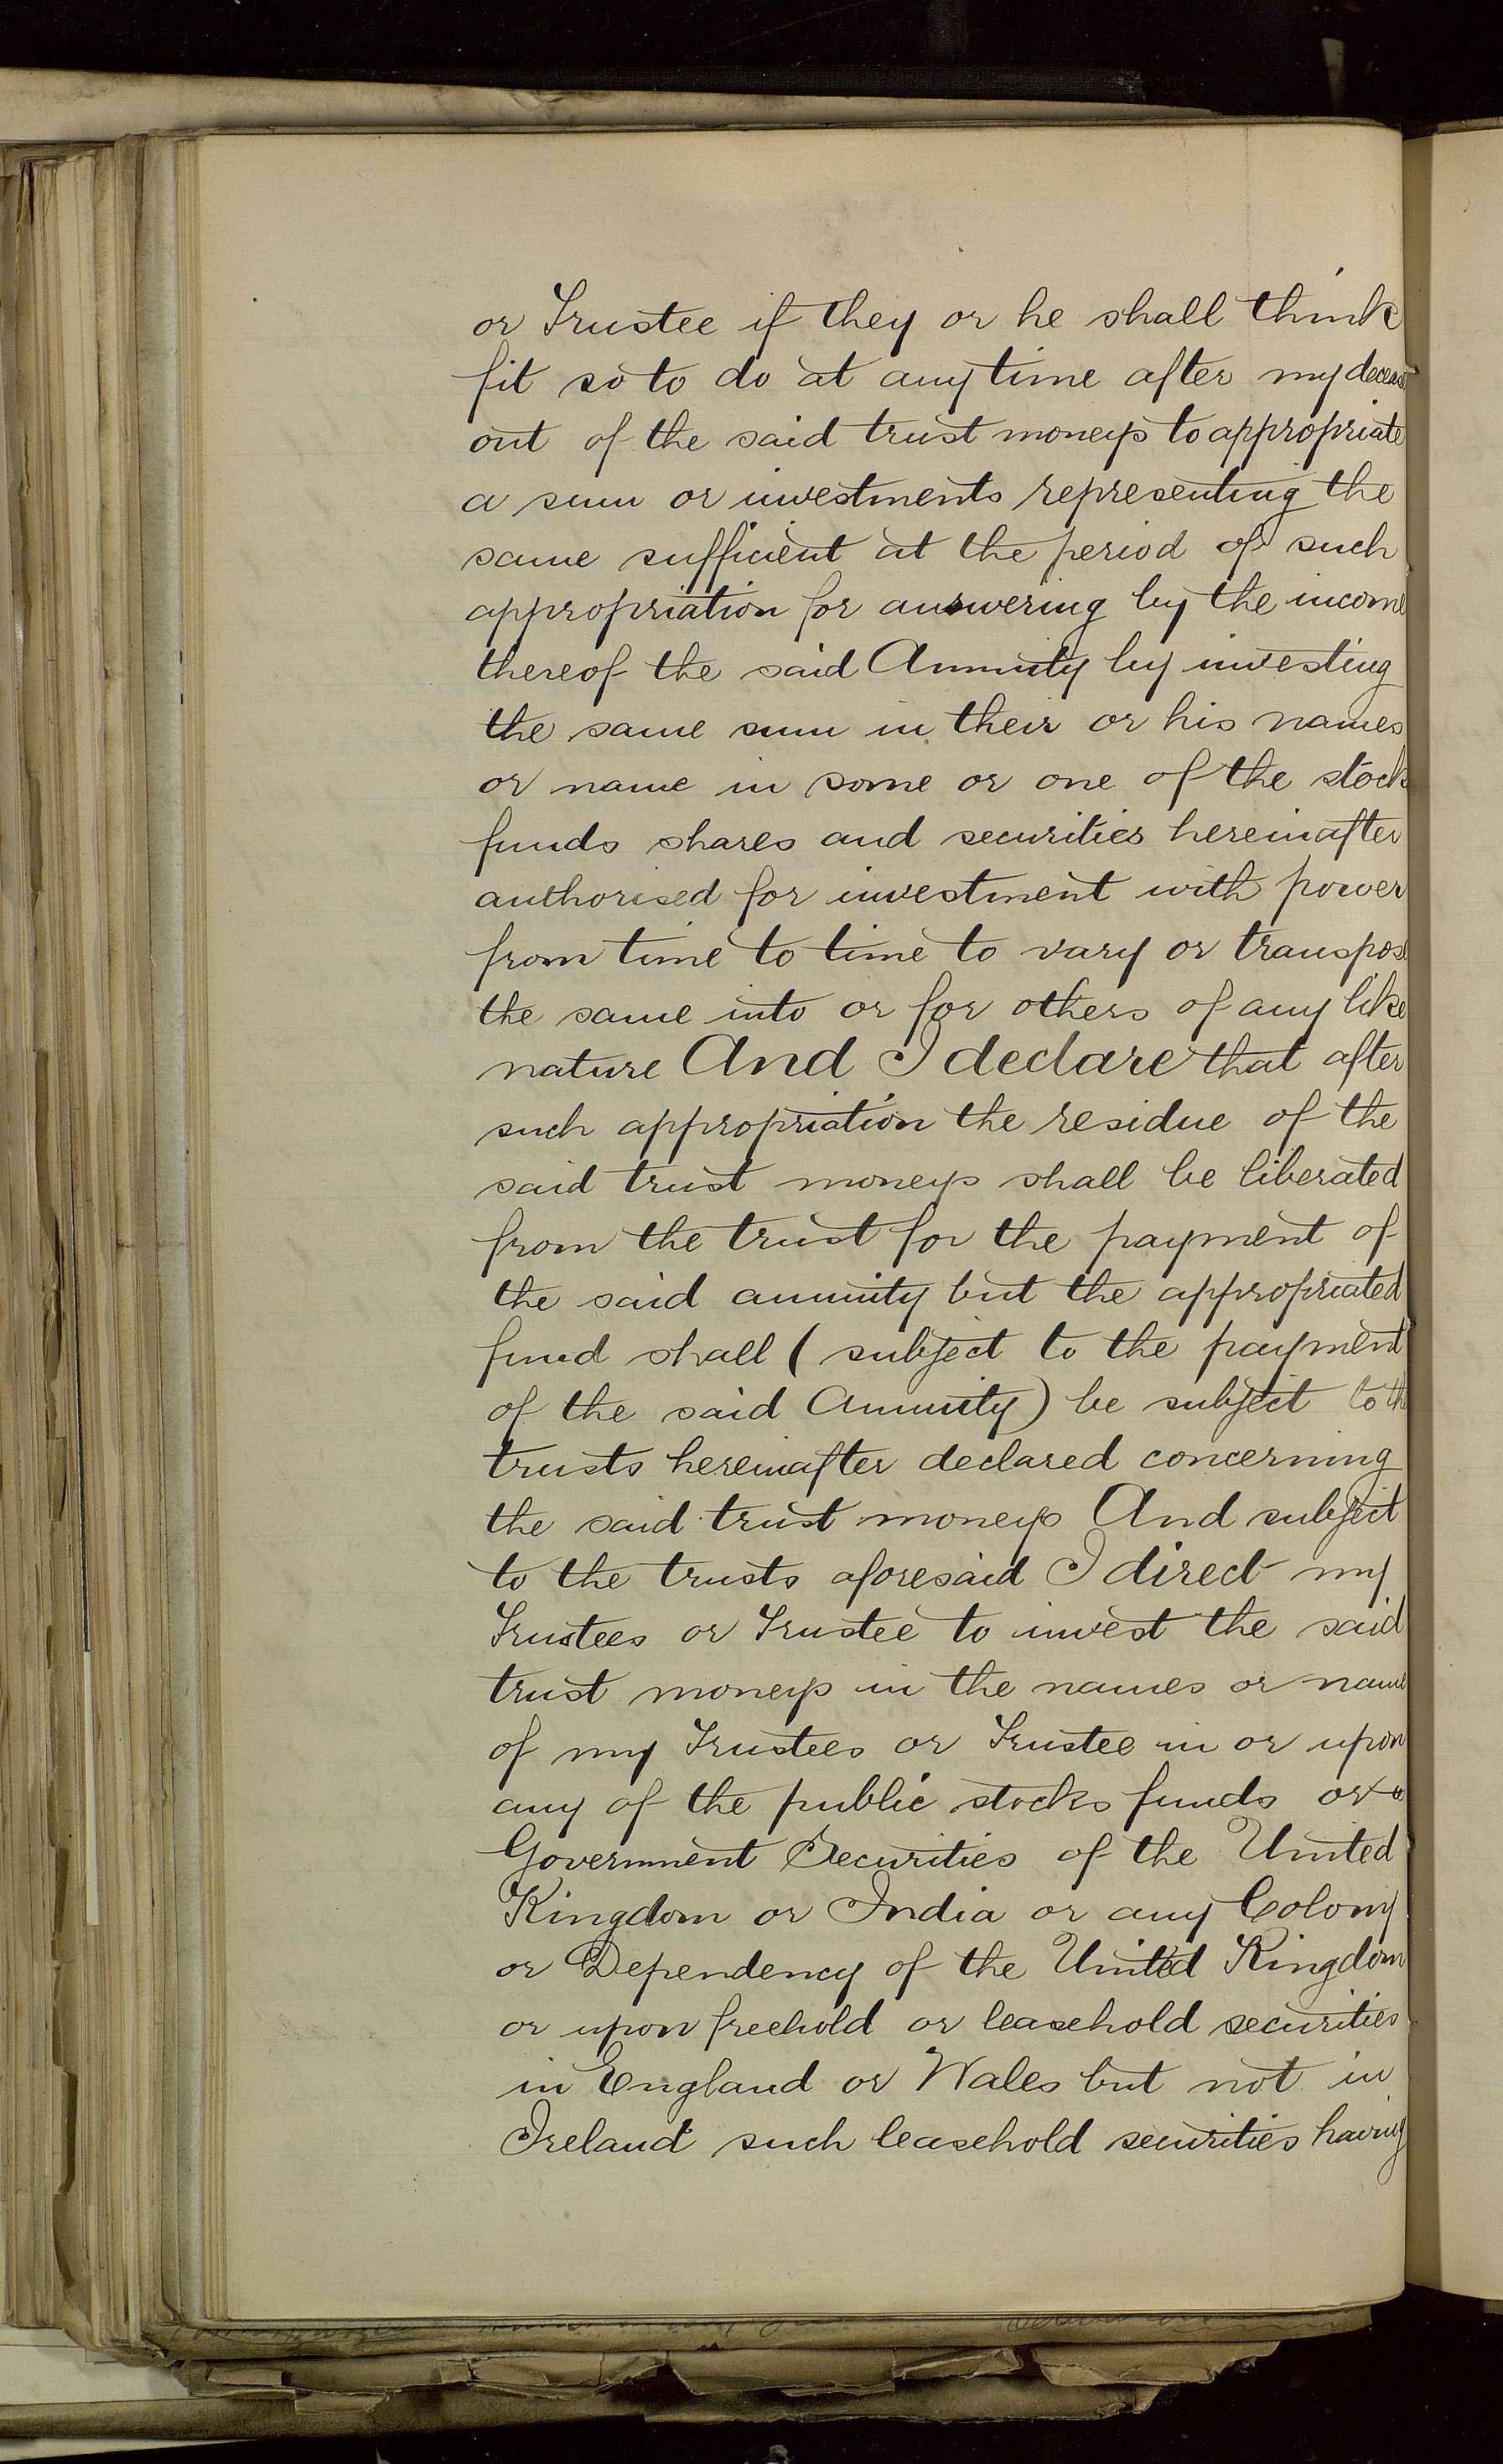 or Trustee if they or he shall think
fit so to do at any time after my decease
out of the said trust moneys to appropriate
a sum or investments representing the
same sufficient at the period of such
appropriation for answering by the income
thereof the said Annuity by investing
the same sum in their or his names
or name in some or one of the stocks
funds shares and securities hereinafter
authorised for investment with power
from time to time to vary or transpose
the same into or for others of any like
nature And I declare that after
such appropriation the residue of the
said trust moneys shall be liberated
from the trust for the payment of
the said annuity but the appropriated
fund shall (subject to the payment
of the said Annuity) be subject to the
trusts hereinafter declared concerning
the said trust moneys And subject
to the trusts aforesaid I direct my
Trustees or Trustee to invest the said
trust moneys in the names or name
of my Trustees or Trustee in or upon
any of the public stocks funds or
Government Securities of the United
Kingdom or India or any Colony
or Dependency of the United Kingdom
or upon freehold or leasehold securities
in England or Wales but not in
Ireland such leasehold securities having